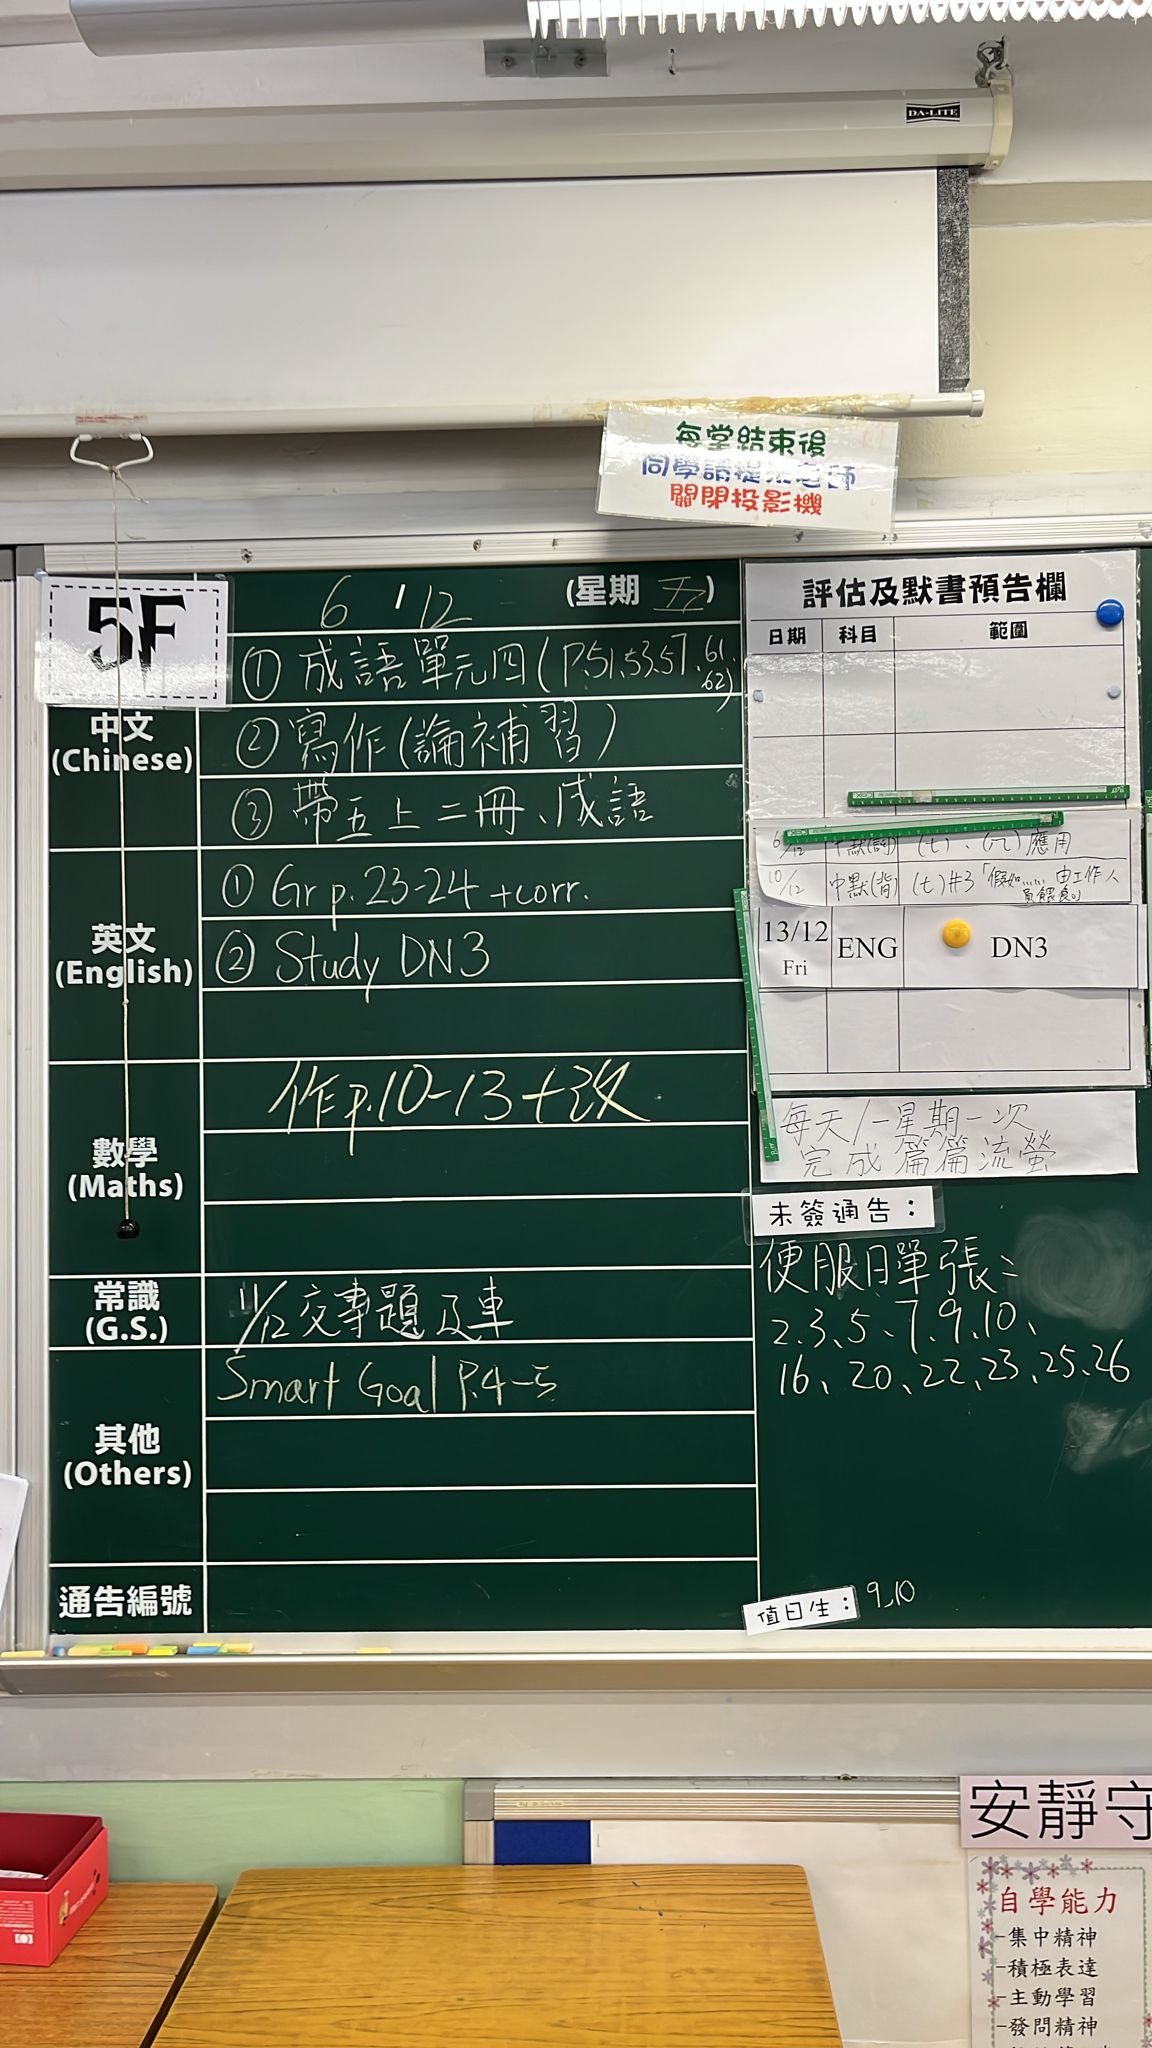 DA-LITE
每堂結束後
同學請提老師
關閉投影機
5F
6 / 12 (星期 五)
中文
(Chinese)
① 成語單元四 (P.51.53.57.61.
62)
② 寫作 (論補習)
③ 帶五上二冊、成語
英文
(English)
① Gr p. 23-24 +corr.
② Study DN3
數學
(Maths)
作 p.10-13 + 改
常識
(G.S.)
11/12 交專題及車
其他
(Others)
Smart Goal P.4-5
通告編號
評估及默書預告欄
日期 科目 範圍
6/12 中默(詞) (七)、(八) 應用
10/12 中默(背) (七)#3「假如…… 由工作人
員餵食。」
13/12 ENG DN3
Fri
每天/一星期一次
完成篇篇流螢
未簽通告：
便服日單張：
2.3.5、7.9.10、
16、20、22、23、25、26
值日生： 9、10
安靜守
自學能力
-集中精神
-積極表達
-主動學習
-發問精神